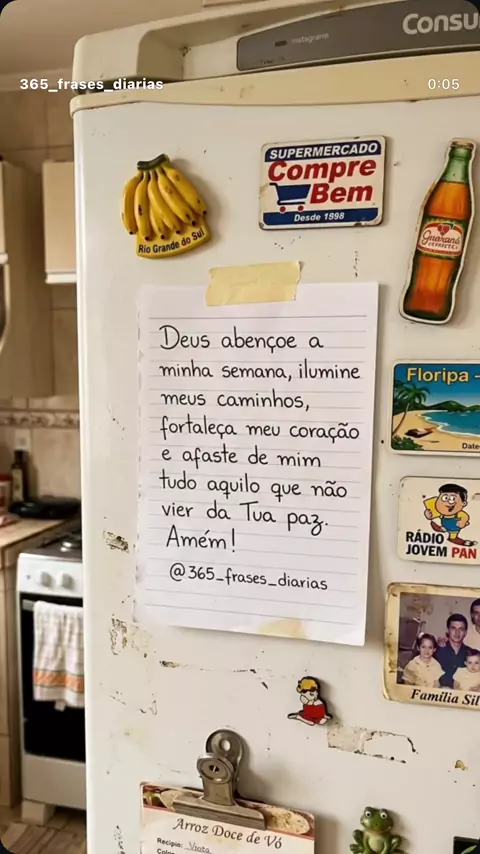 Consu
Instagram
365_frases_diarias
0:05
SUPERMERCADO
Compre
Bem
Desde 1898
Rio Grande do Sul
Guaraná
Deus abençoe a
minha semana, ilumine
meus caminhos,
fortaleça meu coração
e afaste de mim
tudo aquilo que não
vier da Tua paz.
Amém!
@365_frases_diarias
Floripa -
Date
RÁDIO
JOVEM PAN
Família Sil
Arroz Doce de Vó
Recipio: